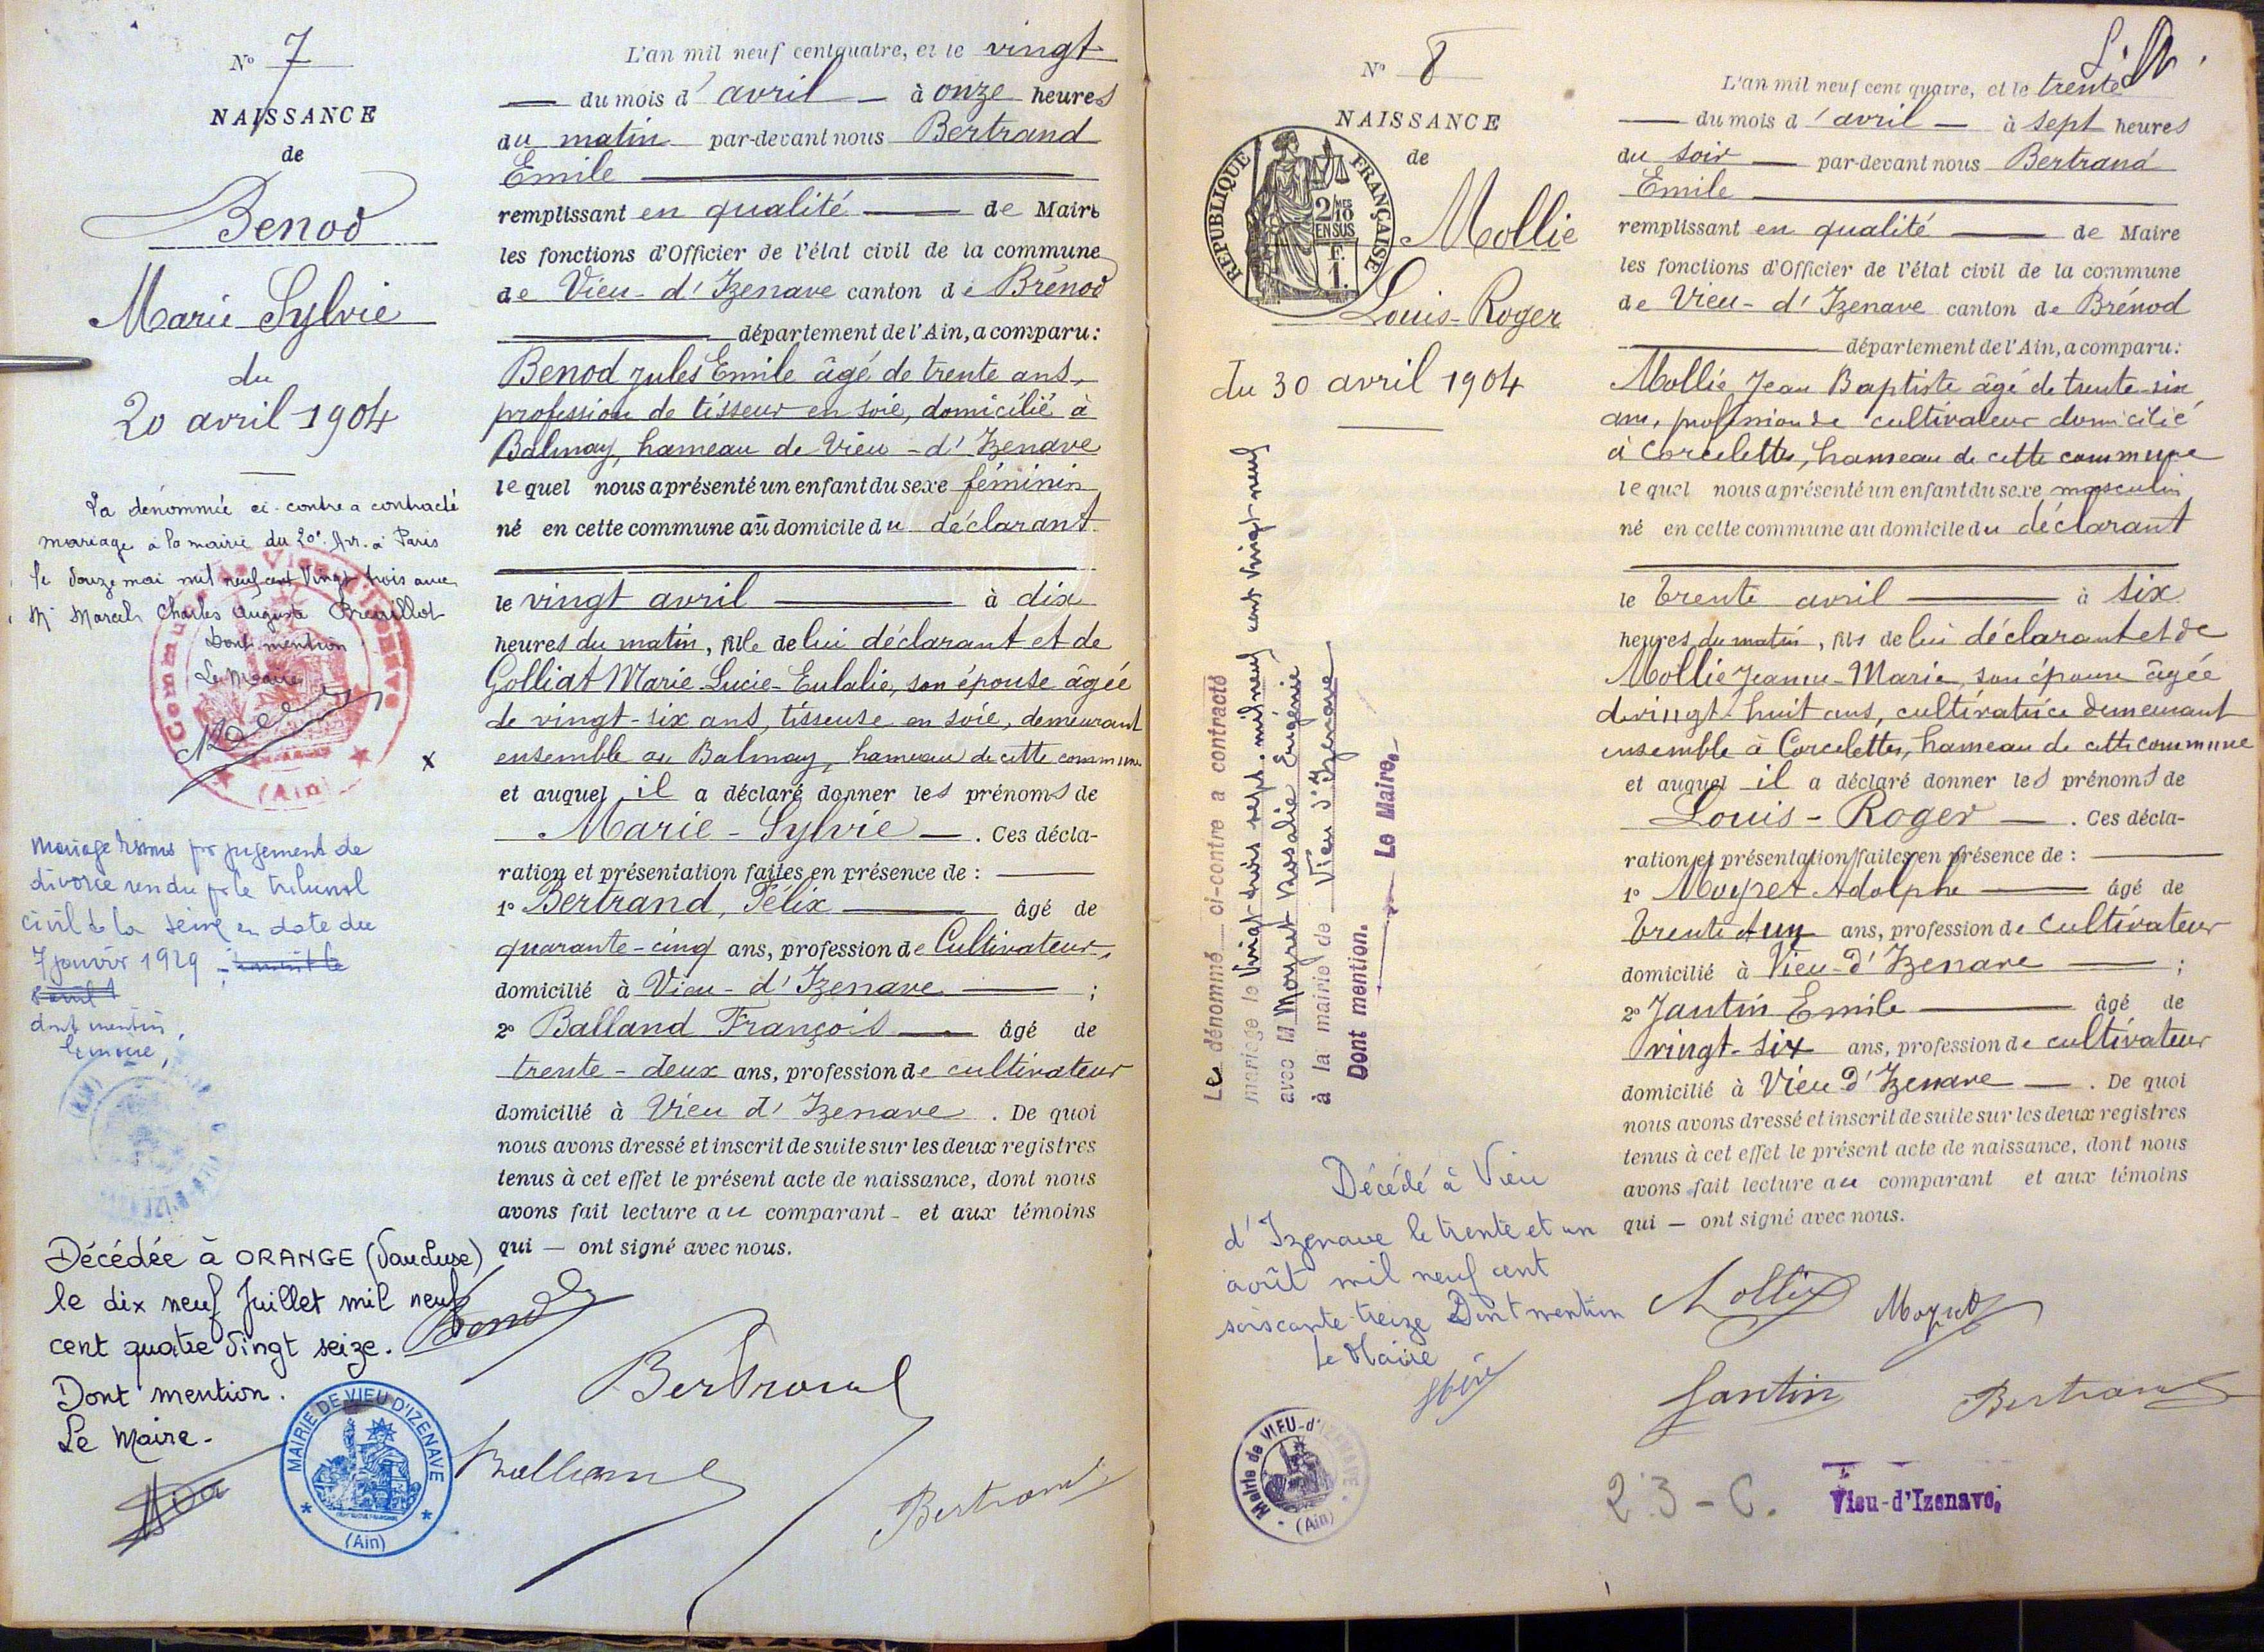 N° 7
NAISSANCE
de
Benod
Marie Sylvie
du
20 avril 1904
La dénommée ci-contre a contracté
mariage à la mairie du 20e Arr. à Paris
le douze mai mil neuf cent vingt trois avec
Mr Marcel Charles Auguste Breuillot
Dont mention
Le Maire
(Ain)
Mariage dissous par jugement de
divorce rendu par le tribunal
civil de la Seine en date du
7 janvier 1929
dont mention,
le maire,
Décédée à ORANGE (Vaucluse)
le dix neuf Juillet mil neuf
cent quatre vingt seize.
Dont mention.
Le Maire.
MAIRIE DE VIEU D'IZENAVE
(Ain)
L'an mil neuf cent quatre, et le vingt
du mois d'avril à onze heures
du matin par-devant nous Bertrand
Emile
remplissant en qualité de Maire
les fonctions d'Officier de l'état civil de la commune
de Vieu-d'Izenave canton de Brénod
département de l'Ain, a comparu:
Benod Jules Emile âgé de trente ans,
profession de tisseur en soie, domicilié à
Balmay, hameau de Vieu-d'Izenave
lequel nous a présenté un enfant du sexe féminin
né en cette commune au domicile du déclarant
le vingt avril à dix
heures du matin, fille de lui déclarant et de
Golliat Marie Lucie-Eulalie, son épouse âgée
de vingt-six ans, tisseuse en soie, demeurant
ensemble au Balmay, hameau de cette commune
x
et auquel il a déclaré donner les prénoms de
Marie-Sylvie. Ces décla-
ration et présentation faites en présence de :
1° Bertrand, Félix âgé de
quarante-cinq ans, profession de Cultivateur,
domicilié à Vieu-d'Izenave ;
2° Balland François âgé de
trente-deux ans, profession de cultivateur
domicilié à Vieu d'Izenave. De quoi
nous avons dressé et inscrit de suite sur les deux registres
tenus à cet effet le présent acte de naissance, dont nous
avons fait lecture au comparant et aux témoins
qui — ont signé avec nous.
Benod
Bertrand
Balland
Bertrand
N° 8
NAISSANCE
de
REPUBLIQUE FRANÇAISE
2/10 MES
EN SUS
F.
1.
Mollie
Louis-Roger
du 30 avril 1904
Le dénommé ci-contre a contracté
mariage le vingt trois sept. mil neuf cent vingt neuf
avec M Moyret Rosalie Eugénie
à la mairie de Vieu d'Izenave
Dont mention.
Le Maire,
Décédé à Vieu
d'Izenave le trente et un
août mil neuf cent
soixante-treize Dont mention
Le Maire
Mairie de VIEU-d'IZENAVE
(Ain)
L'an mil neuf cent quatre, et le trente
du mois d'avril à sept heures
du soir par-devant nous Bertrand
Emile
remplissant en qualité de Maire
les fonctions d'Officier de l'état civil de la commune
de Vieu-d'Izenave canton de Brénod
département de l'Ain, a comparu:
Mollie Jean Baptiste âgé de trente-six
ans, profession de cultivateur domicilié
à Corcelettes, hameau de cette commune
lequel nous a présenté un enfant du sexe masculin
né en cette commune au domicile du déclarant
le trente avril à six
heures du matin, fils de lui déclarant et de
Mollie Jeanne-Marie, son épouse âgée
de vingt-huit ans, cultivatrice demeurant
ensemble à Corcelettes, hameau de cette commune
et auquel il a déclaré donner les prénoms de
Louis-Roger. Ces décla-
ration et présentation faites en présence de :
1° Moyret Adolphe âgé de
trente et un ans, profession de cultivateur
domicilié à Vieu-d'Izenave ;
2° Jantin Emile âgé de
vingt-six ans, profession de cultivateur
domicilié à Vieu d'Izenave. De quoi
nous avons dressé et inscrit de suite sur les deux registres
tenus à cet effet le présent acte de naissance, dont nous
avons fait lecture au comparant et aux témoins
qui — ont signé avec nous.
Mollie
Moyret
Jantin
Bertrand
23-C.
Vieu-d'Izenave,